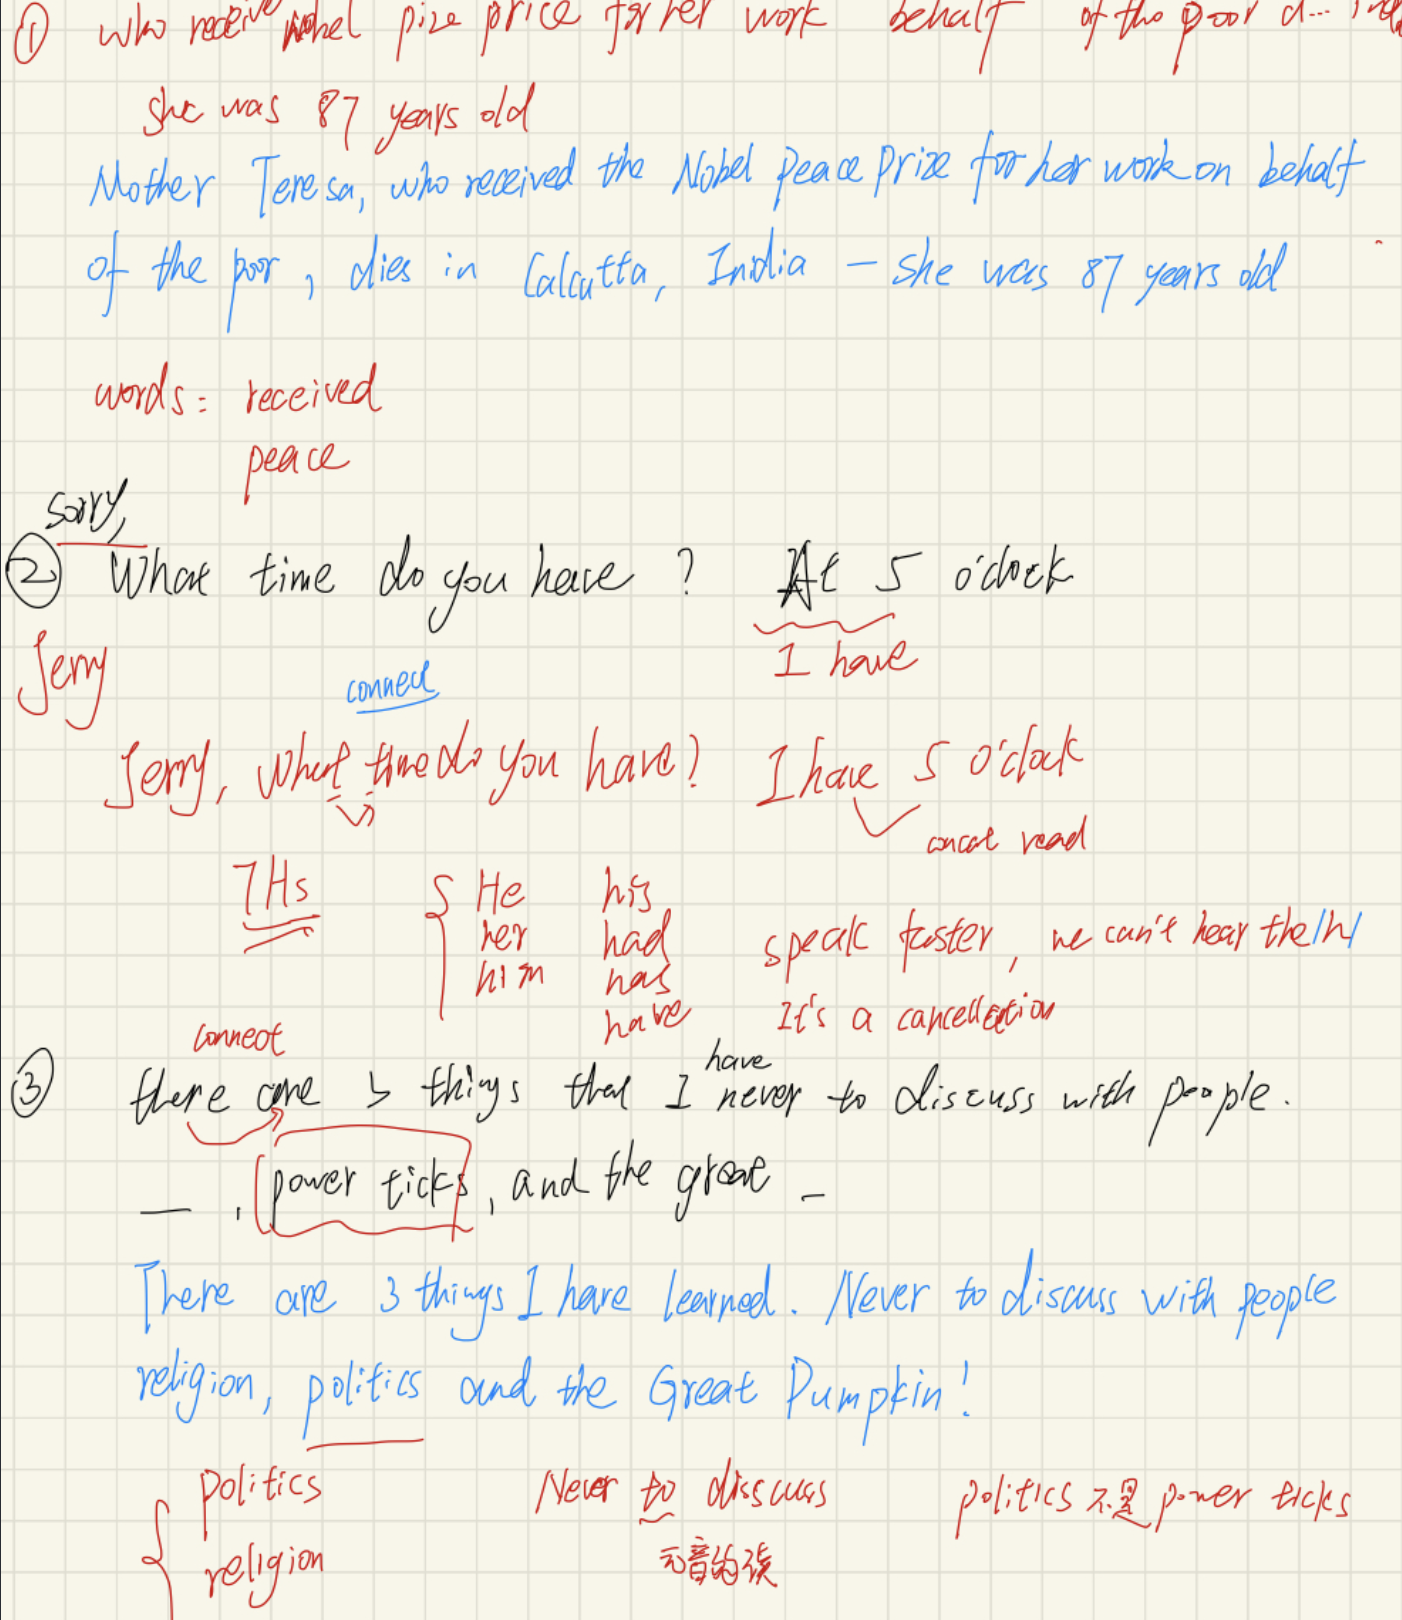 ① who receive nobel pize price for her work behalf of the poor d...
she was 87 years old
Mother Teresa, who received the Nobel Peace Prize for her work on behalf
of the poor, dies in Calcutta, India – she was 87 years old
words: received
peace
sorry,
② What time do you have ? At 5 o'clock
Jerry
I have
connect
Jerry, What time do you have? I have 5 o'clock
concat read
7Hs
He his
her had
him has
have
speak faster, we can't hear the /h/
It's a cancellation
connect
have
③ there are 3 things that I never to discuss with people.
__ , power ticks, and the great _
There are 3 things I have learned. Never to discuss with people
religion, politics and the Great Pumpkin!
politics Never to disscuss politics 不是 power ticks
religion 元音的读